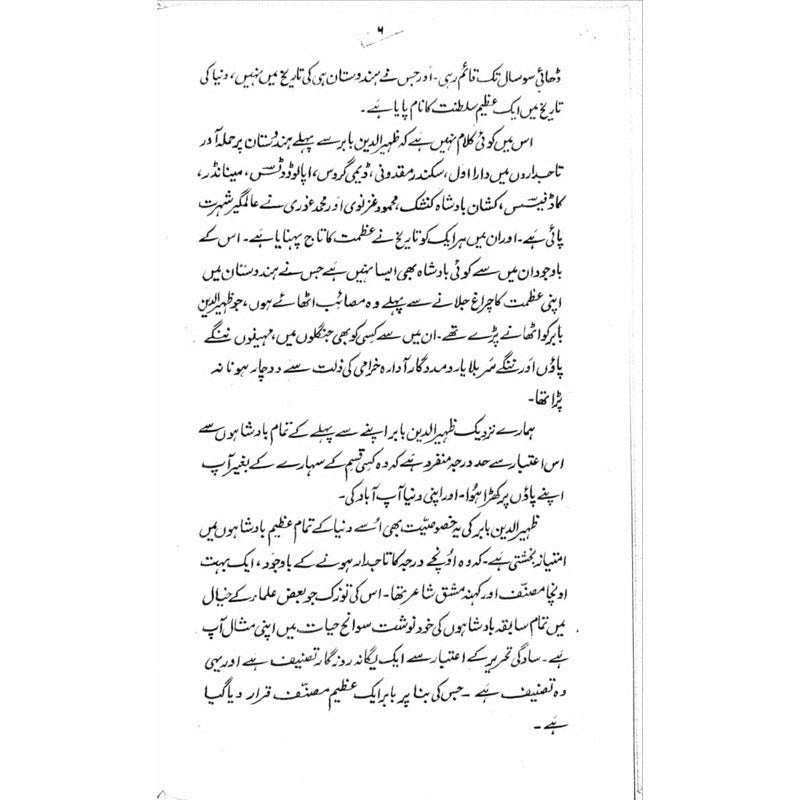 ۶
ڈھائی سو سال تک قائم رہی۔ اور جس نے ہندوستان ہی کی تاریخ میں نہیں، دنیا کی
تاریخ میں ایک عظیم سلطنت کا نام پایا ہے۔
اس میں کوئی کلام نہیں ہے کہ ظہیر الدین بابر سے پہلے ہندوستان پر حملہ آور
تاجداروں میں دارا اول، سکندر مقدونی، ڈیمی گروس، اپالوڈوٹس، مینانڈر،
کاڈفیسس، کشان بادشاہ کنشک، محمود غزنوی اور محمد غوری نے عالمگیر شہرت
پائی ہے۔ اور ان میں ہر ایک کو تاریخ نے عظمت کا تاج پہنایا ہے۔ اس کے
باوجود ان میں سے کوئی بادشاہ بھی ایسا نہیں ہے جس نے ہندوستان میں
اپنی عظمت کا چراغ جلانے سے پہلے وہ مصائب اٹھائے ہوں، جو ظہیر الدین
بابر کو اٹھانے پڑے تھے۔ ان میں سے کسی کو بھی جنگلوں میں، مہینوں ننگے
پاؤں اور ننگے سر بلا یار و مددگار آوارہ خرامی کی ذلت سے دوچار ہونا نہ
پڑا تھا۔
ہمارے نزدیک ظہیر الدین بابر اپنے سے پہلے کے تمام بادشاہوں سے
اس اعتبار سے حد درجہ منفرد ہے کہ وہ کسی قسم کے سہارے کے بغیر آپ
اپنے پاؤں پر کھڑا ہوا۔ اور اپنی دنیا آپ آباد کی۔
ظہیر الدین بابر کی یہ خصوصیّت بھی اُسے دنیا کے تمام عظیم بادشاہوں میں
امتیاز بخشتی ہے۔ کہ وہ اونچے درجہ کا تاجدار ہونے کے باوجود، ایک بہت
اونچا مصنّف اور کہنہ مشق شاعر تھا۔ اس کی توزک جو بعض علماء کے خیال
میں تمام سابقہ بادشاہوں کی خود نوشت سوانح حیات میں اپنی مثال آپ
ہے۔ سادگی تحریر کے اعتبار سے ایک یگانہ روزگار تصنیف ہے اور یہی
وہ تصنیف ہے۔ جس کی بنا پر بابر ایک عظیم مصنّف قرار دیا گیا
ہے۔